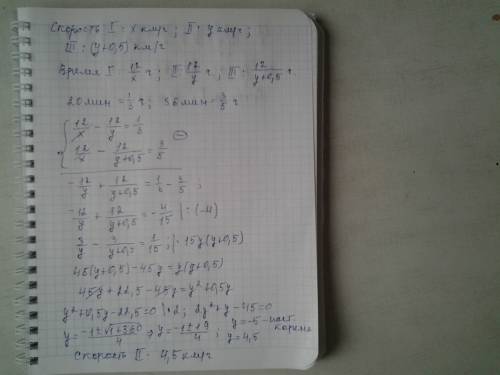 Скорость I - x км/ч ; II - y км/ч ;
III - (y+0,5) км/ч
Время I - 12/x ч ; II - 12/y ч ; III - 12/(y+0,5) ч.
20 мин = 1/3 ч ; 36 мин = 3/5 ч
{ 12/x - 12/y = 1/3
12/x - 12/(y+0,5) = 3/5 (-)
-12/y + 12/(y+0,5) = 1/3 - 3/5 ;
-12/y + 12/(y+0,5) = -4/15 | : (-4)
3/y - 3/(y+0,5) = 1/15 ; | · 15y(y+0,5)
45(y+0,5) - 45y = y(y+0,5)
45y + 22,5 - 45y = y² + 0,5y
y² + 0,5y - 22,5 = 0 | · 2 ; 2y² + y - 45 = 0
y = (-1±√(1+360))/4 ; y = (-1±19)/4 ; y = -5 - пост. корень
y = 4,5
Скорость II - 4,5 км/ч